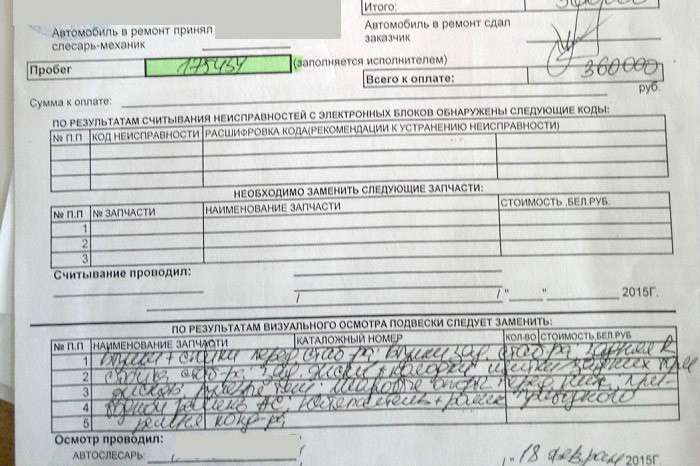 Итого:
Автомобиль в ремонт принял
слесарь-механик
Автомобиль в ремонт сдал
заказчик
Пробег 175434 (заполняется исполнителем)
Всего к оплате: 360000
руб.
Сумма к оплате:
ПО РЕЗУЛЬТАТАМ СЧИТЫВАНИЯ НЕИСПРАВНОСТЕЙ С ЭЛЕКТРОННЫХ БЛОКОВ ОБНАРУЖЕНЫ СЛЕДУЮЩИЕ КОДЫ:
№ П.П КОД НЕИСПРАВНОСТИ РАСШИФРОВКА КОДА(РЕКОМЕНДАЦИИ К УСТРАНЕНИЮ НЕИСПРАВНОСТИ)
НЕОБХОДИМО ЗАМЕНИТЬ СЛЕДУЮЩИЕ ЗАПЧАСТИ:
№ П.П № ЗАПЧАСТИ НАИМЕНОВАНИЕ ЗАПЧАСТИ СТОИМОСТЬ ,БЕЛ.РУБ.
1
2
3
Считывание проводил:
/ / " " 2015Г.
ПО РЕЗУЛЬТАТАМ ВИЗУАЛЬНОГО ОСМОТРА ПОДВЕСКИ СЛЕДУЕТ ЗАМЕНИТЬ:
№ П.П НАИМЕНОВАНИЕ ЗАПЧАСТИ КАТАЛОЖНЫЙ НОМЕР КОЛ-ВО СТОИМОСТЬ,БЕЛ.РУБ
1 втулки + стойки перед стаб-ра, втулки зад. стаб-ра
2 стаб-ра, зад. диски + колодки
3
4 ремень натяжитель + ролик
5 ремня конд-ра
Осмотр проводил:
АВТОСЛЕСАРЬ: "18 феврал 2015Г.